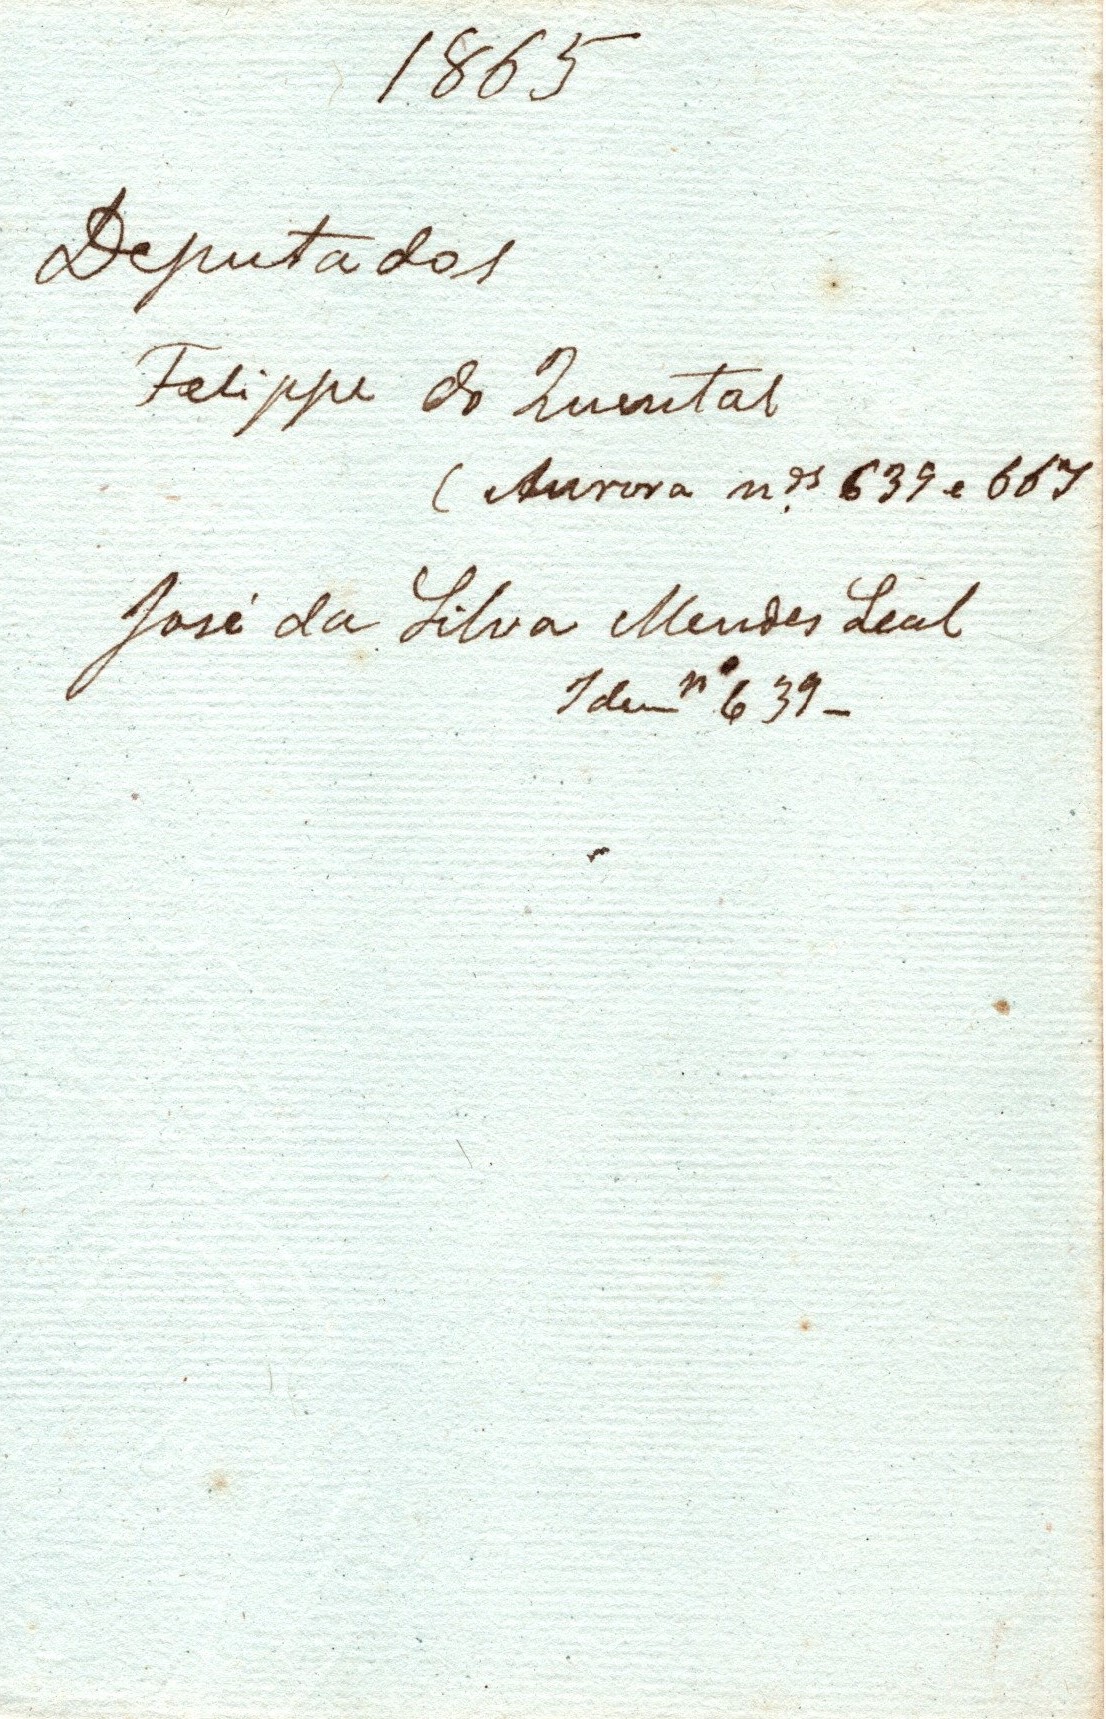 1865
Deputados
Felippe do Quental
(Aurora n.os 639 e 667
José da Silva Mendes Leal
Idem nº 639-